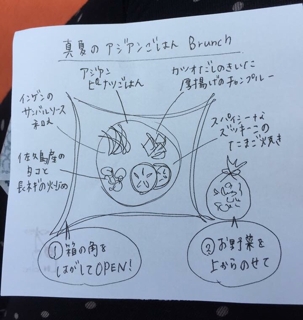 真夏のアジアンごはん Brunch
アジアン
ピーナツごはん
カツオだしのきいた
厚揚げのチャンプルー
インゲンの
サンバルソース
和え
スパイシーな
ズッキーニの
たまご焼き
佐久島産の
タコと
長ネギの火炒め
① 箱の角を
はがしてOPEN!
② お野菜を
上からのせて